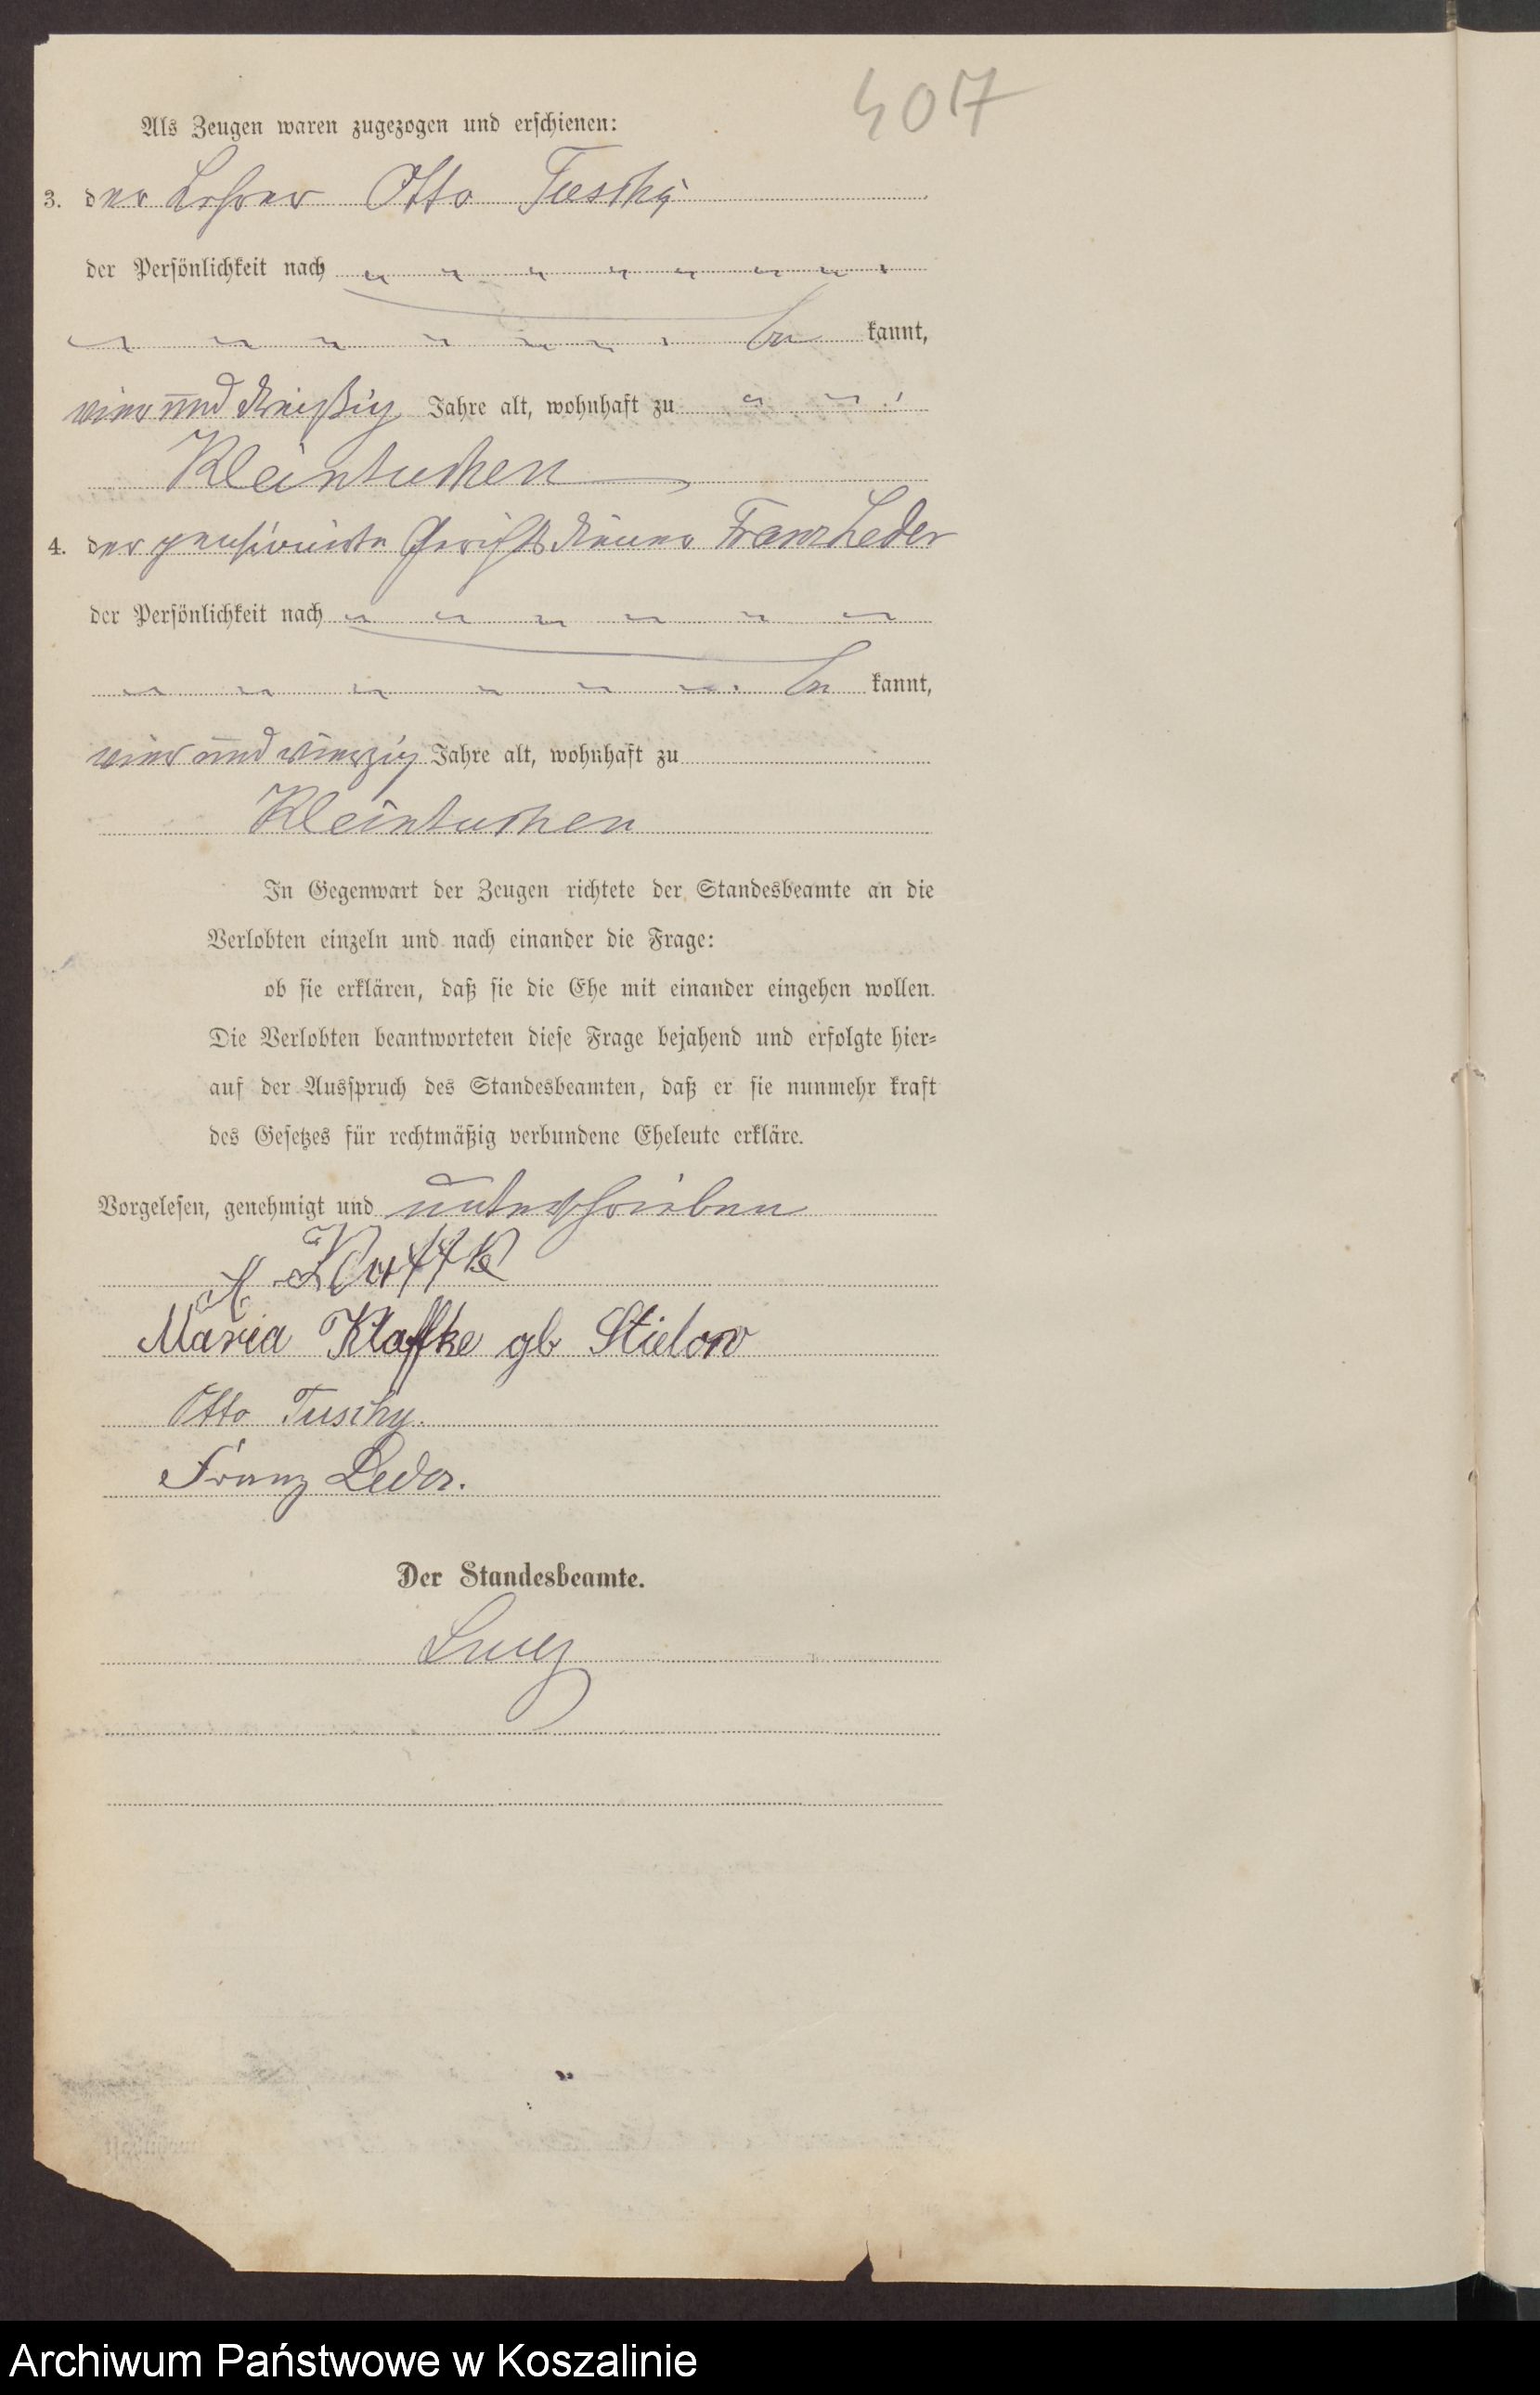 407
Als Zeugen waren zugezogen und erschienen:
3. der Lehrer Otto Tuschy
der Persönlichkeit nach
be kannt,
vier und dreißig Jahre alt, wohnhaft zu
Kleintuchen
4. der pensionirte Gerichtsdiener Franz Leder
der Persönlichkeit nach
be kannt,
vier und vierzig Jahre alt, wohnhaft zu
Kleintuchen
In Gegenwart der Zeugen richtete der Standesbeamte an die
Verlobten einzeln und nach einander die Frage:
ob sie erklären, daß sie die Ehe mit einander eingehen wollen.
Die Verlobten beantworteten diese Frage bejahend und erfolgte hier-
auf der Ausspruch des Standesbeamten, daß er sie nunmehr kraft
des Gesetzes für rechtmäßig verbundene Eheleute erkläre.
Vorgelesen, genehmigt und unterschrieben
Maria Klaffke gb Stielow
Otto Tuschy.
Franz Leder.
Der Standesbeamte.
Archiwum Państwowe w Koszalinie